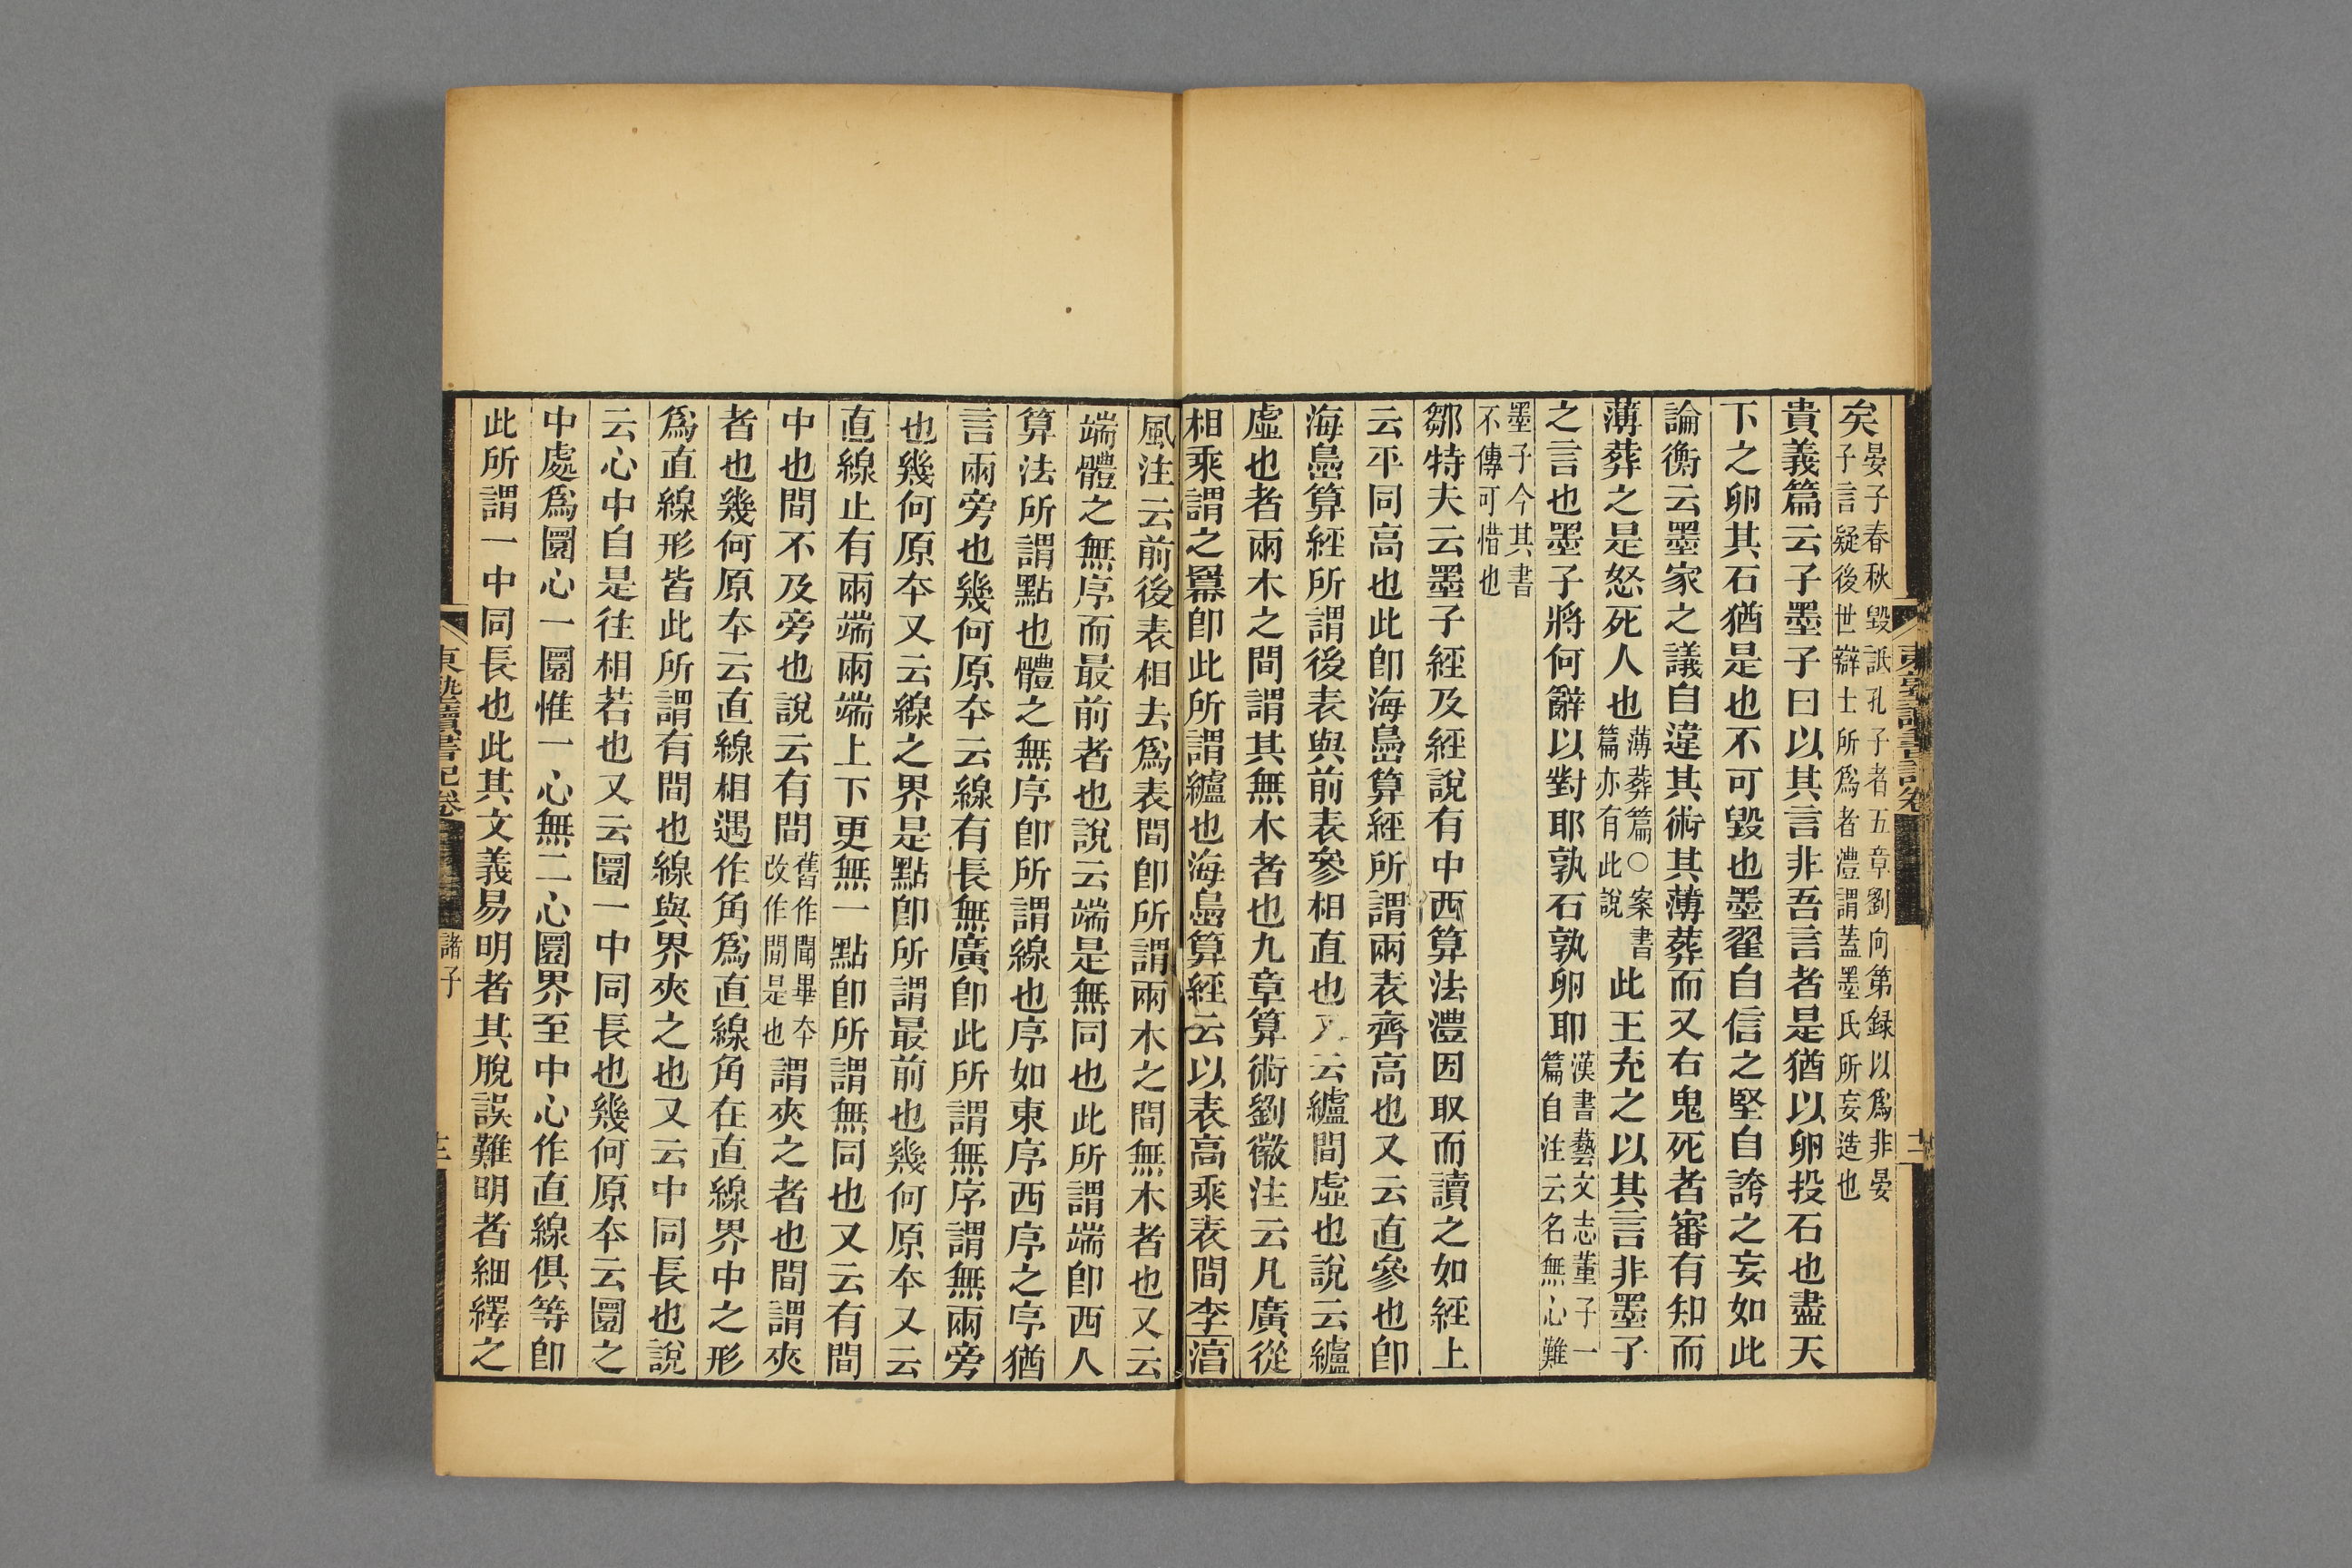 矣晏子春秋毀詆孔子者五章劉向第録以爲非晏子言疑後世辯士所爲者澧謂蓋墨氏所妄造也
貴義篇云子墨子曰以其言非吾言者是猶以卵投石也盡天
下之卵其石猶是也不可毀也墨翟自信之堅自誇之妄如此
論衡云墨家之議自違其術其薄葬而又右鬼死者審有知而
薄葬之是怒死人也薄葬篇○案書篇亦有此說此王充之以其言非墨子
之言也墨子將何辭以對耶孰石孰卵耶漢書藝文志董子一篇自注云名無心難
墨子今其書不傳可惜也
鄒特夫云墨子經及經說有中西算法澧因取而讀之如經上
云平同高也此卽海島算經所謂兩表齊高也又云直參也卽
海島算經所謂後表與前表參相直也又云纑間虛也說云纑
虛也者兩木之間謂其無木者也九章算術劉徽注云凡廣從
相乘謂之冪卽此所謂纑也海島算經云以表高乘表間李淳
風注云前後表相去爲表間卽所謂兩木之間無木者也又云
端體之無序而最前者也說云端是無同也此所謂端卽西人
算法所謂點也體之無序卽所謂線也序如東序西序之序猶
言兩旁也幾何原本云線有長無廣卽此所謂無序謂無兩旁
也幾何原本又云線之界是點卽所謂最前也幾何原本又云
直線止有兩端兩端上下更無一點卽所謂無同也又云有間
中也間不及旁也說云有間舊作聞畢本改作閒是也謂夾之者也間謂夾
者也幾何原本云直線相遇作角爲直線角在直線界中之形
爲直線形皆此所謂有間也線與界夾之也又云中同長也說
云心中自是往相若也又云圜一中同長也幾何原本云圜之
中處爲圜心一圜惟一心無二心圜界至中心作直線俱等卽
此所謂一中同長也此其文義易明者其脫誤難明者細繹之
東塾讀書記卷
諸子